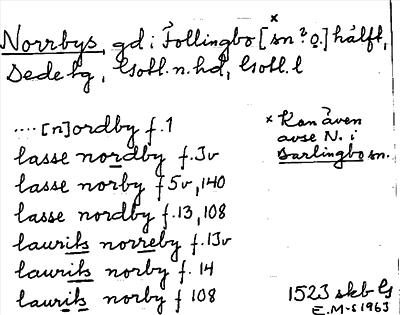 Norrbys, gd i Follingbo [sn? o.] hälft,
Dede tg, Gotl. n. hd, Gotl. l
.... [n]ordby f. 1
lasse nordby f. 3v
lasse norby f 5v, 140
lasse nordby f. 13, 108
lauriks norreby f. 13v
lauriks norby f. 14
lauriks norby f 108
× Kan även
avse N. i
Barlingbo sn.
1523 skb G
E. M-s 1963